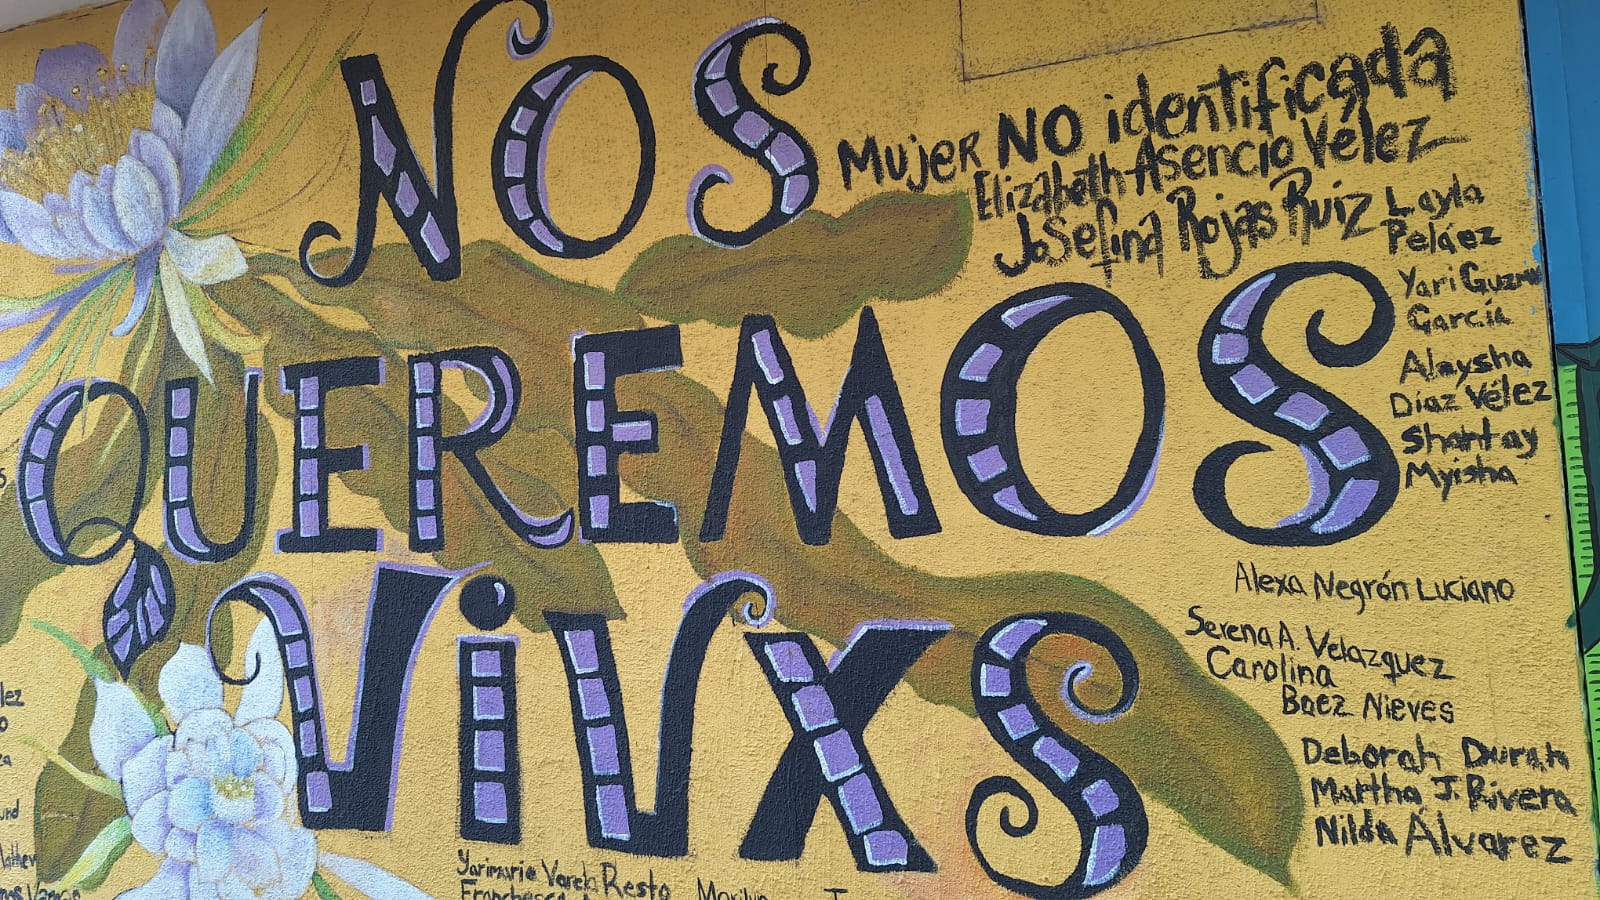 NOS
QUEREMOS
ViVXS
Mujer NO identificada
Elizabeth Asencio Vélez
Josefina Rojas Ruiz
Layla
Peláez
Yari Guzmán
García
Aleysha
Díaz Vélez
Shantay
Myisha
Alexa Negrón Luciano
Serena A. Velazquez
Carolina
Baez Nieves
Deborah Durán
Martha J. Rivera
Nilda Álvarez
Yarimarie
Resto